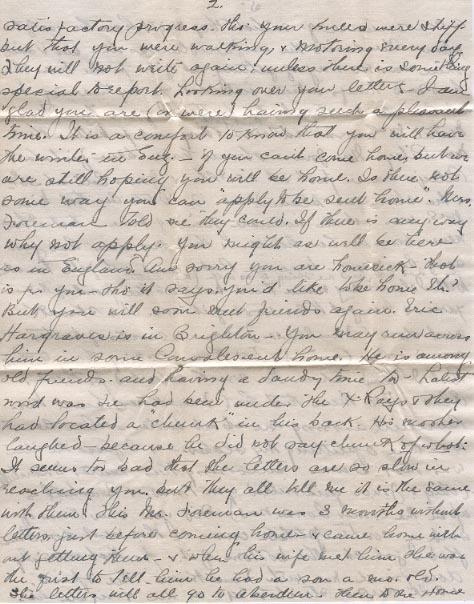 2.
satisfactory progress. Tho' your knees were stiff
but that you were walking, & motoring every day.
They will not write again unless there is something
special to report. Looking over your letters I am
glad you are (or were) having such a pleasant
time. It is a comfort to know that you will have
the winter in Eng. - if you can't come home, but we
are still hoping you will be home. Is there not
some way you can "apply to be sent home". Mrs.
Foreman told me they could. If there is any way
why not apply. You might as well be here
as in England. Am sorry you are homesick - that
is you - tho' it says you'd like to be home
But you will soon meet friends again. Eric
Hargraves is in Brighton - You may run across
him in some Convalescent home. He is among
old friends. and having a dandy time. The latest
word was he had been under the X-Rays & they
had located a "chunk" in his back. His mother
laughed - because he did not say chunk of what.
It seems too bad that the letters are so slow in
reaching you but they all tell me it is the same
with them. This Mr. Foreman was 3 months without
letters just before coming home - & came home with
out getting them - & when his wife met him she was
the first to tell him he had a son a mo. old.
The letters will all go to Aberdeen - then to the Home